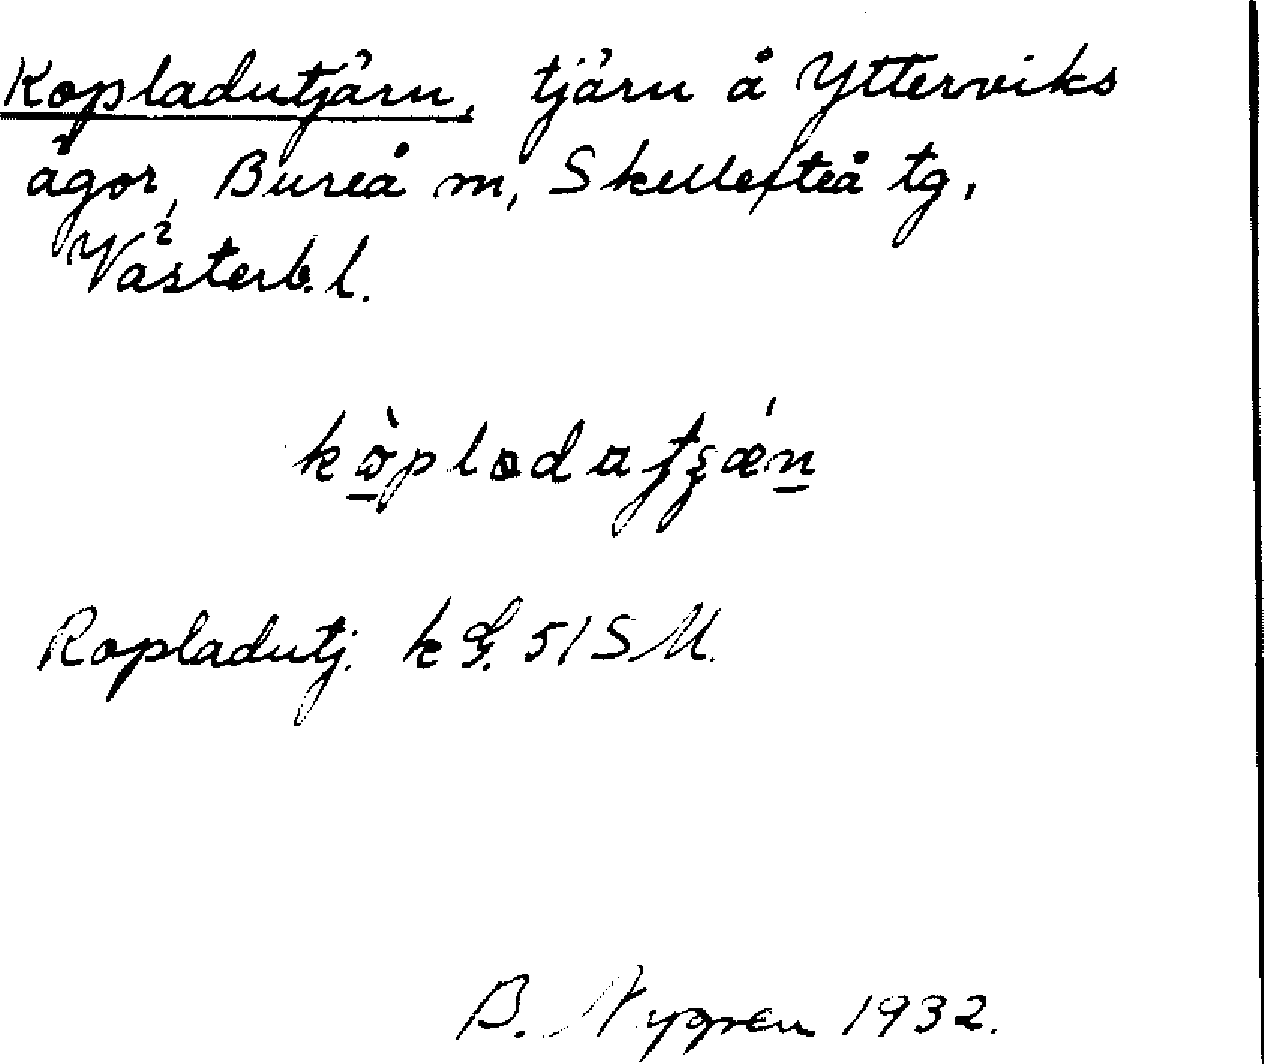 Kopladutjärn, tjärn å Ytterviks
ägor, Bureå m, Skellefteå tg,
Västerb. l.
Kopladutj. k G. 51 SM.
B. Nygren 1932.